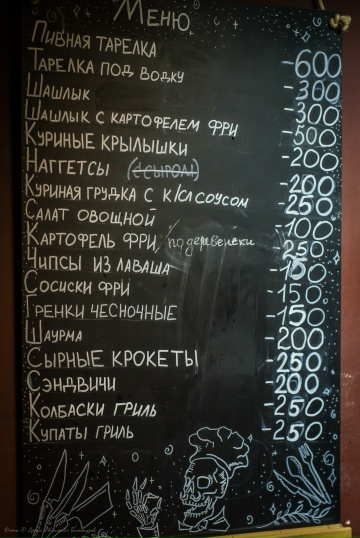 Меню
Пивная тарелка -600
Тарелка под водку -300
Шашлык -300
Шашлык с картофелем фри -500
Куриные крылышки -200
Наггетсы (с сыром) -200
Куриная грудка с к/сл соусом -250
Салат овощной 100
Картофель фри/по деревенски 250
Чипсы из лаваша -150
Сосиски фри -150.
Гренки чесночные -150
Шаурма -200
Сырные крокеты -250
Сэндвичи -200
Колбаски гриль -250
Купаты гриль -250